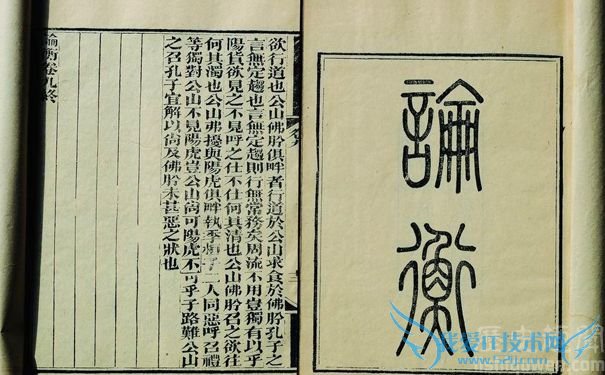 論衡
欲行道也公山佛肸俱畔者行道於公山求食於佛肸孔子之
言無定趨也言無定趨則行無常務矣周流不用豈獨有以乎
陽貨欲見之不見呼之仕不仕何其清也公山佛肸召之欲往
何其濁也公山弗擾與陽虎俱畔執季桓子二人同惡呼召禮
等獨對公山不見陽虎豈公山尚可陽虎不可乎子路難公山
之召孔子宜解以尚及佛肸未甚惡之狀也
論衡卷九終
我爱IT技术网